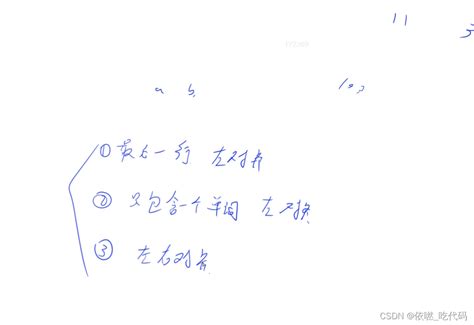 11
a b
① 最后一行 左对齐
② 只包含一个单词 左对换
③ 左右对齐
CSDN @依嗷_吃代码